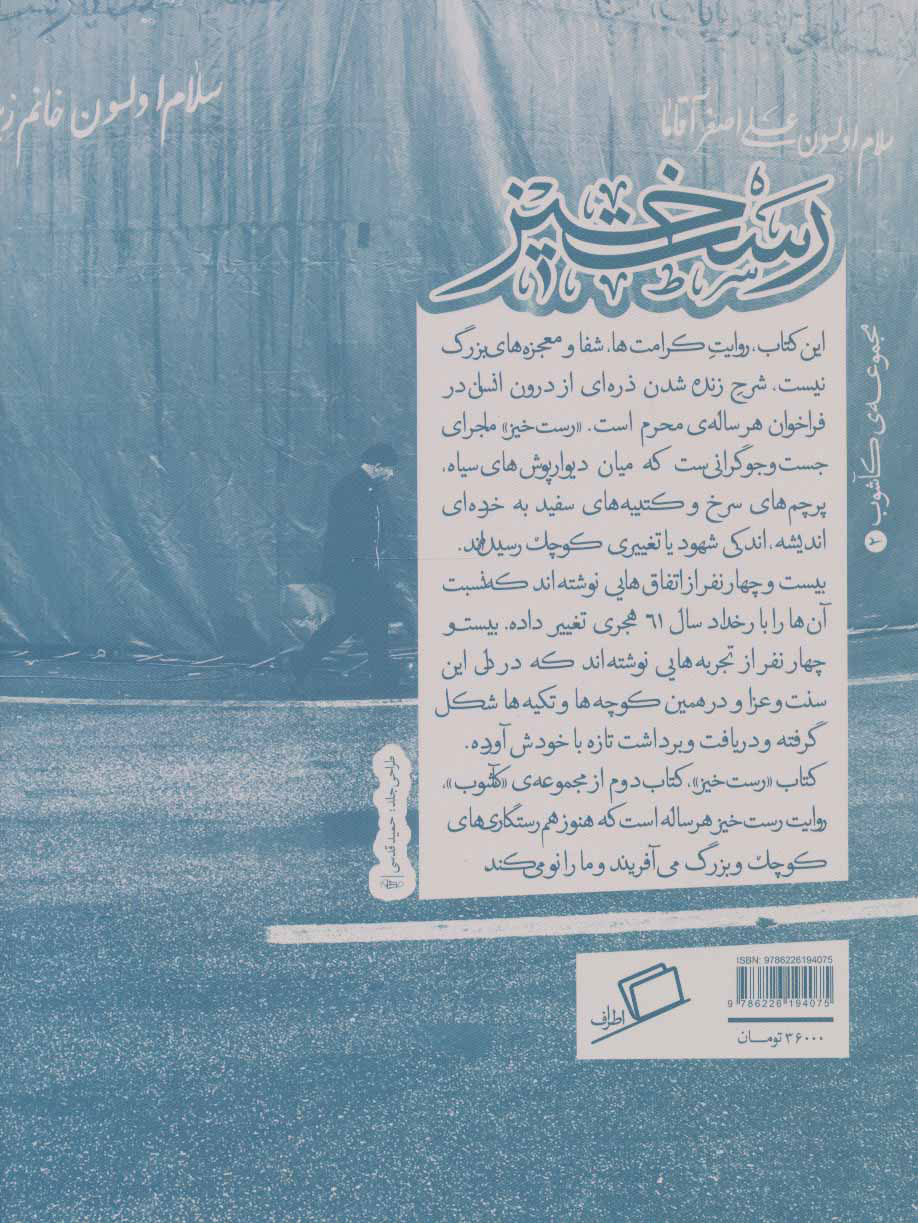 سلام اولسون خانم
سلام اولسون علی اصغر آقاما
رستخیز
مجموعه‌ی کآشوب ۲
این کتاب، روایتِ کرامت‌ها، شفا و معجزه‌های بزرگ
نیست، شرحِ زنده شدن ذره‌ای از درون انسان در
فراخوان هر ساله‌ی محرم است. «رست‌خیز» ماجرای
جست‌وجوگرانی‌ست که میان دیوارپوش‌های سیاه،
پرچم‌های سرخ و کتیبه‌های سفید به خرده‌ای
اندیشه، اندکی شهود یا تغییری کوچک رسیده‌اند.
بیست و چهار نفر از اتفاق‌هایی نوشته‌اند که نسبت
آن‌ها را با رخداد سال ۶۱ هجری تغییر داده. بیست و
چهار نفر از تجربه‌هایی نوشته‌اند که در دل این
سنت و عزا و در همین کوچه‌ها و تکیه‌ها شکل
گرفته و دریافت و برداشت تازه با خودش آورده.
کتاب «رست‌خیز»، کتاب دوم از مجموعه‌ی «کآشوب»،
روایت رست‌خیز هرساله است که هنوز هم رستگاری‌های
کوچک و بزرگ می‌آفریند و ما را نو می‌کند
طراحی جلد: حمید قدسی
ISBN: 9786226194075
9 786226 194075
اطراف
۳۶۰۰۰ تومان